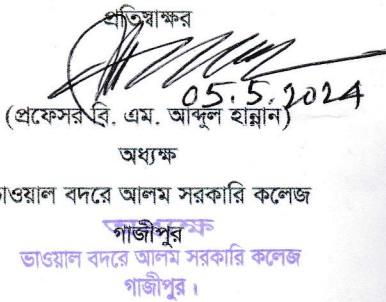 প্রতিস্বাক্ষর
05.5.2024
(প্রফেসর বি. এম. আব্দুল হান্নান)
অধ্যক্ষ
ভাওয়াল বদরে আলম সরকারি কলেজ
গাজীপুর
অধ্যক্ষ
ভাওয়াল বদরে আলম সরকারি কলেজ
গাজীপুর।